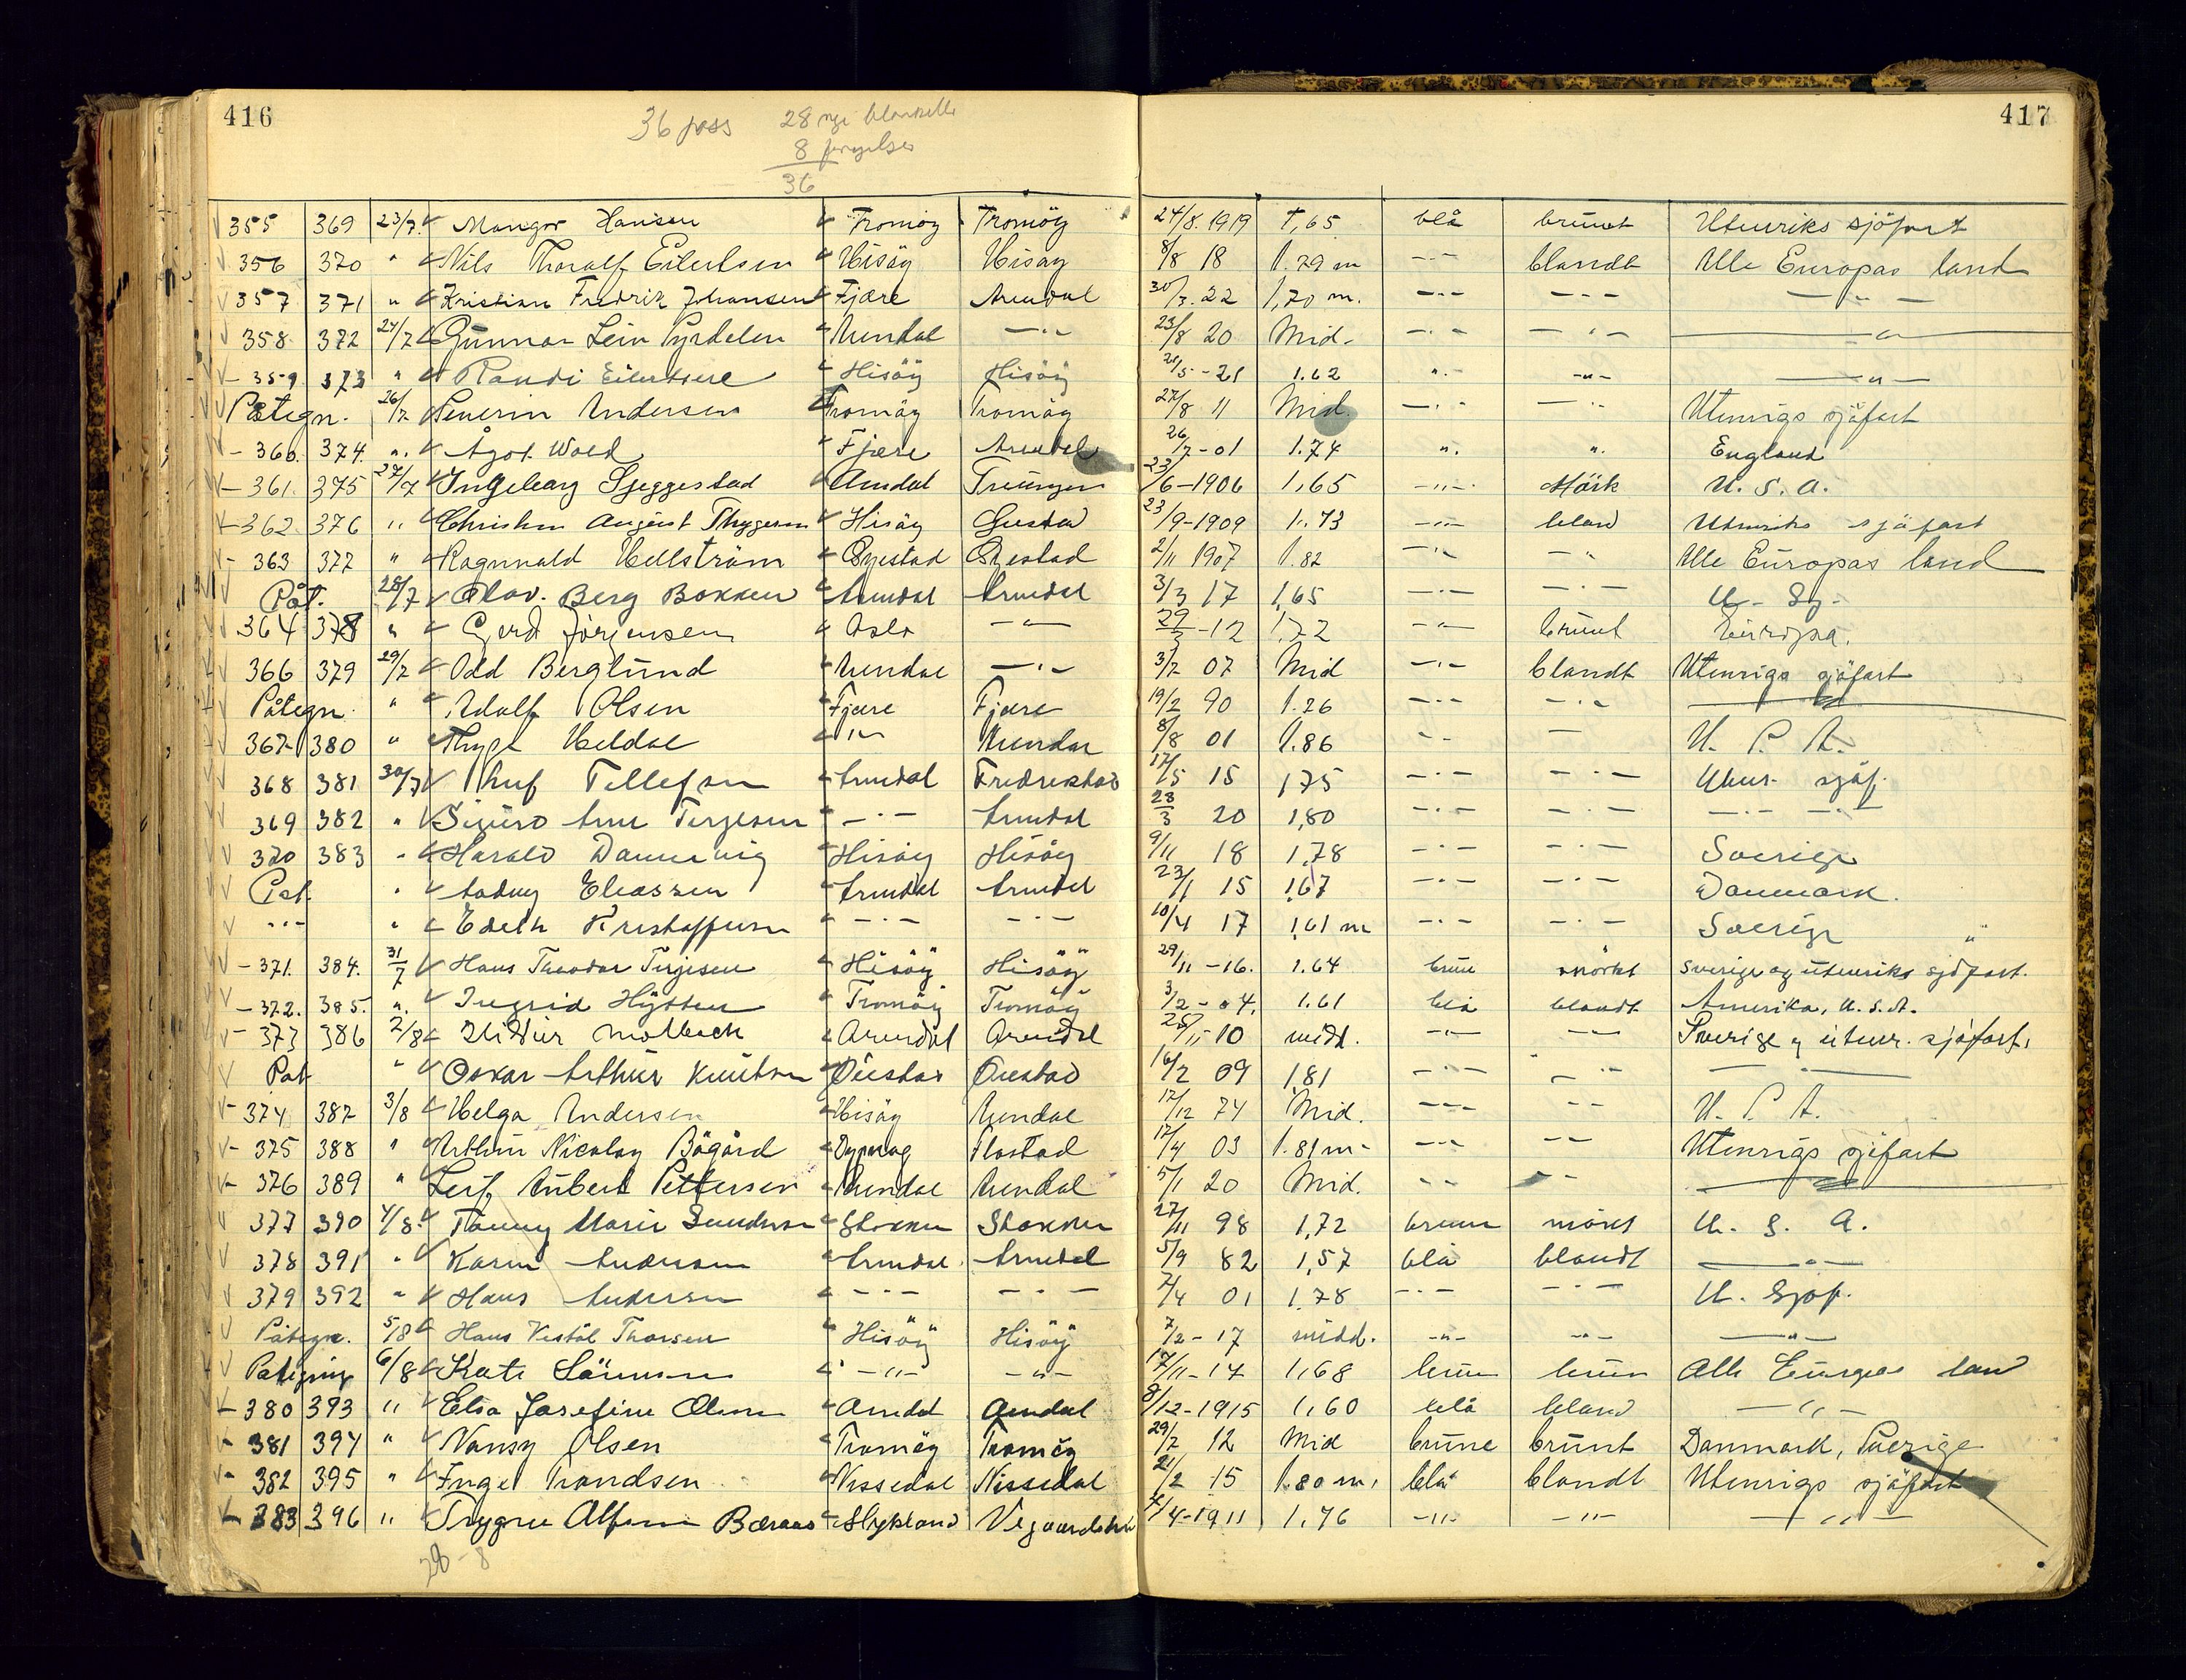 416
36 pass 28 nye blanketter
8 fornyelser
36
417
355 369 23/7 Mangor Hansen Tromöy Tromöy 24/8. 1919 1,65 blå brunt Utenriks sjöfart
356 370 " Nils Thoralf Eilertsen Hisöy Hisöy 8/8 18 1.79 m -"- blandt Alle Europas land
357 371 " Kristian Fredrik Johansen Fjære Arendal 30/3. 22 1,70 m. -"- -"- -"-
358 372 24/7 Gunnar Lein Arendal -"- 23/8 20 Mid. -"- -"- -"-
359 373 " Randi Eilertsen Hisöy Hisöy 21/5 - 21 1.62 "- -"- -"-
Påtegn. 26/7 Severin Andersen Tromöy Tromöy 27/8 11 Mid. -"- -"- Utenrigs sjöfart
360. 374. " Ågot Wold Fjære Arendal 26/7 - 01 1.74 ". ". England
361. 375 27/7 Ingeborg Sjeggestad Arendal Treungen 23/6 - 1906 1,65 -"- Mörk U. S. A.
362 376 " Christen August Thygesen Hisöy 23/9 - 1909 1.73 -"- bland Utenriks sjöfart
363 377 " Ragnvald Hellström Öyestad Öyestad 2/11 1907 1.82 -"- -"- Alle Europas land
Påt. 28/7 Olav. Berg Bokken Arendal Arendal 3/3 17 1,65 -"- -"- U. Sj.
364 378 " Gerd Jörgensen Oslo -"- 29/3 - 12 1,72 -"- brunt Europa.
366 379 29/7 Odd Berglund Arendal -"- 3/7 07 Mid -"- blandt Utenrigs sjöfart
Påtegn. " Adolf Olsen Fjære Fjære 19/2 90 1.76 -"- -"- -"-
367 380 " Heldal -"- Arendal 8/8 01 1.86 -"- - U. S. A.
368 381 30/7 Tellefsen Arendal Fredrikstad 17/5 15 1,75 -"- -"- Utenr. sjöf.
369 382 " Sigurd Arne Terjesen -"- Arendal 28/3 20 1,80 -"- -"- -"-
370 383 " Harald Dannevig Hisöy Hisöy 9/11 18 1,78 -"- -"- Sverige
Påt. " Eliassen Arendal Arendal 23/1 15 1,67 -"- -"- Danmark.
-"- " Edith Kristoffersen -"- -"- 10/4 17 1,61 m -"- -"- Sverige
371. 384. 31/7 Hans Theodor Terjesen Hisöy Hisöy 29/11 - 16. 1.64 brun mörkt Sverige og utenriks sjöfart.
372. 385. ". Ingrid Hytten Tromöy Tromöy 3/2 - 04. 1.61 blå blandt Amerika, U. S. A.
373 386 2/8 Molbech Arendal Arendal 25/11 - 10 midd. -"- -"- Sverige og utenr. sjöfart.
Påt " Oskar Arthur Knutsen Öiestad Öiestad 16/2 09 1,81 -"- -"- -"-
374 387 3/8 Helga Andersen Hisöy Arendal 17/12 74 Mid. -"- -"- U. S. A.
375 388 " Arthur Nicolay Bögård Dypvåg Flostad 17/4 03 1.81 m -"- -"- Utenrigs sjöfart
376 389 " Leif Aubert Pettersen Arendal Arendal 5/1 20 Mid. -"- -"- -"-
377 390 4/8 Fanny Marie Gundersen Stokken Stokken 27/11 98 1,72 brun mörkt U. S. A.
378 391 " Karen Andersen Arendal Arendal 5/9 82 1,57 blå blandt -"-
379 392 " Hans Andersen -"- -"- 7/4 01 1.78 -"- -"- U. Sjöf.
Påtegn. 5/8 Hans Vestöl Thorsen Hisöy Hisöy 7/2 - 17 midd. -"- -"- -"-
Påtegning 6/8 Kate Sörensen -"- -"- 17/11 - 14 1,68 brun brun Alle Europas land
380 393 " Elsa Josefine Olsen Arendal Arendal 8/12 - 1915 1,60 blå bland -"-
381 394 " Nansy Olsen Tromöy Tromöy 29/7 12 Mid brune brunt Danmark, Sverige
382 395 " Inge Trondsen Nissedal Nissedal 21/2 15 1.80 m. blå blandt Utenrigs sjöfart
383 396 " Trygve Alfsen Beraas 4/4 - 1911 1,76 -"- -"- -"-
28 - 8